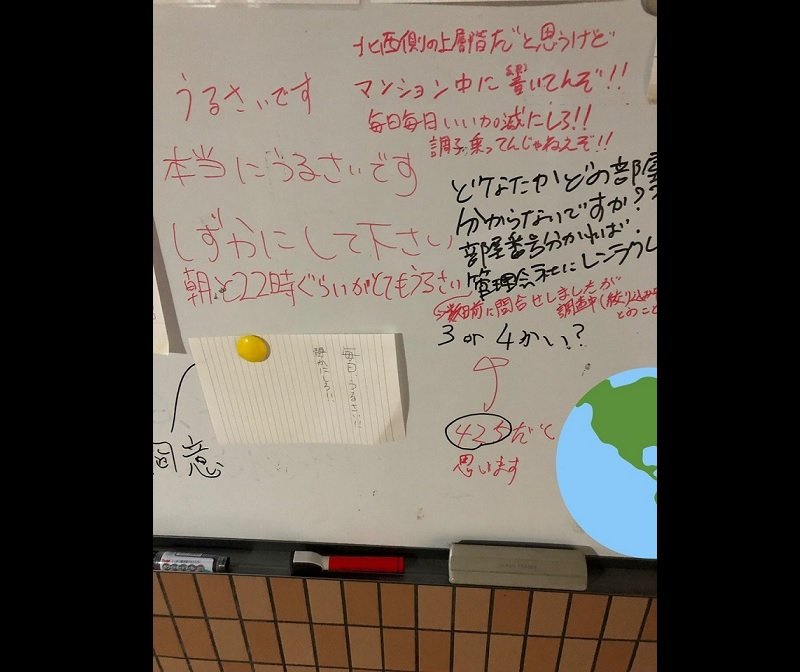 うるさいです
本当にうるさいです
しずかにして下さい
朝と22時ぐらいがとてもうるさい
北西側の上層階だと思うけど
マンション中に響いてんぞ!!
毎日毎日いいかの減にしろ!!
調子乗ってんじゃねえぞ!!
どなたかどの部屋
分からないですか?
部屋番号分かれば、
管理会社にレンラク
数日前に問合せしましたが
調査中(絞り込み
とのこと
3 or 4かい?
425だと
思います
毎日うるさい!!
静かにしろ!!
同意